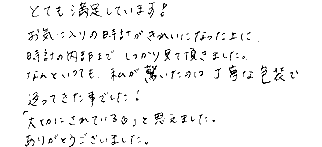 とても満足しています!
お気に入りの時計がきれいになった上に、
時計の内部まで しっかり見て頂きました。
なんといっても、私が驚いたのは 丁寧な包装で
送ってきた事でした!
「大切にされている」と思えました。
ありがとうございました。